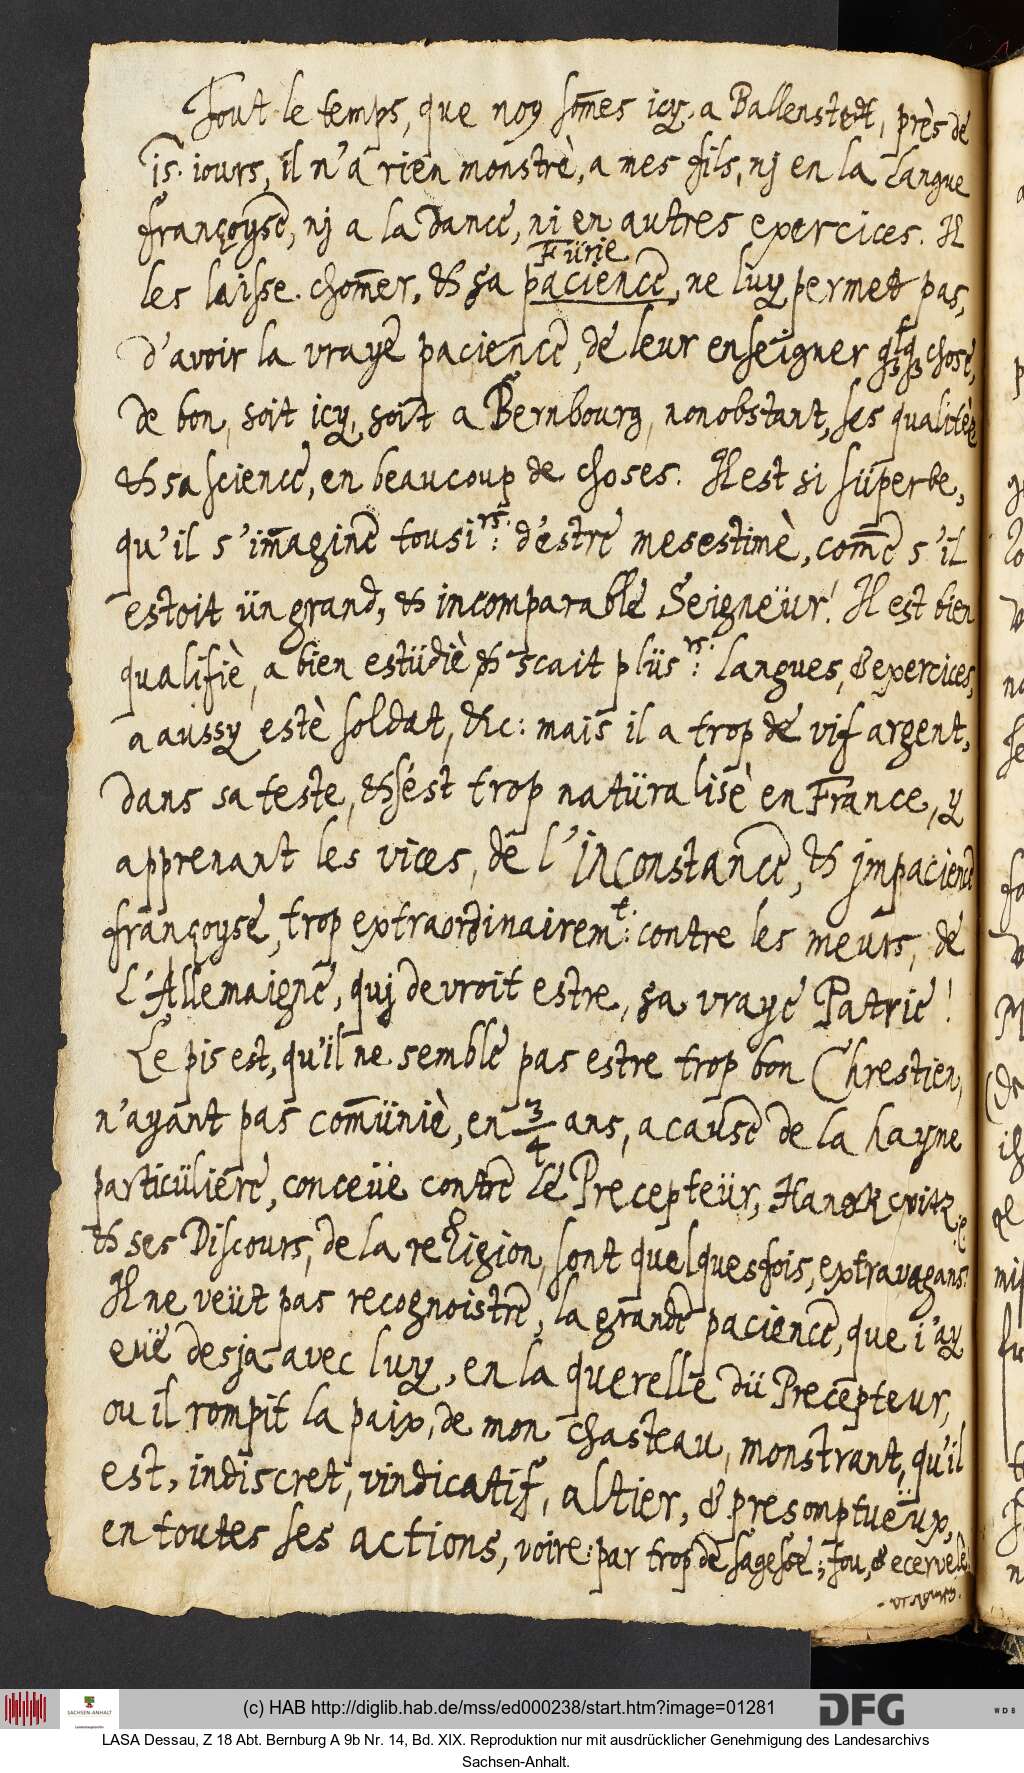 Tout le temps, que no9 somes icy, a Ballenstedt, près de
15. iours, il n'a rien monstrè, a mes fils, nj en la langue
françoyse, nj a la dance, ni en autres exercices. Il
Fürie
les laisse chomer, et sa pacience, ne luy permet pas,
d'avoir la vraye pacience, de leur enseigner chose,
de bon, soit icy, soit a Bernbourg, nonobstant, ses qualitèe
et sa science, en beaucoup de choses. Il est si süperbe,
qu'il s'imagine tousi:rs: d'estre mesestimè, come s'il
estoit ün grand, et incomparable Seigneür! Il est bien
qualifiè, a bien estüdiè et scait plüs:rs: langues, & exercices,
a aussy estè soldat, etc: mais il a trop de vif argent,
dans sa teste, et s'est trop natüralisè en France, y
apprenant les vices, de l'inconstance, et jmpacience
françoyse, trop extraordinairem:t: contre les meurs, de
l'Allemaigne, quj devroit estre, sa vraye Patrie!
Le pis est, qu'il ne semble pas estre trop bon Chrestien,
n'ayant pas comüniè, en 3/4 ans, a cause de la hayne
particüliere, conceüe contre le Precepteür, Hanckwitz
et ses Discours, de la religion, sont quelquesfois, extravagans.
Il ne veüt pas recognoistre, la grande pacience, que i'ay
eüe desja avec luy, en la querelle dü Precepteur,
ou il rompit la paix, de mon chasteau, monstrant, qu'il
est, indiscret, vindicatif, altier, & presomptueüx,
en toutes ses actions, voire par trop de sagesse, fou, & ecervelè!
(c) HAB http://diglib.hab.de/mss/ed000238/start.htm?image=01281
SACHSEN-ANHALT
DFG
WDB
LASA Dessau, Z 18 Abt. Bernburg A 9b Nr. 14, Bd. XIX. Reproduktion nur mit ausdrücklicher Genehmigung des Landesarchivs
Sachsen-Anhalt.